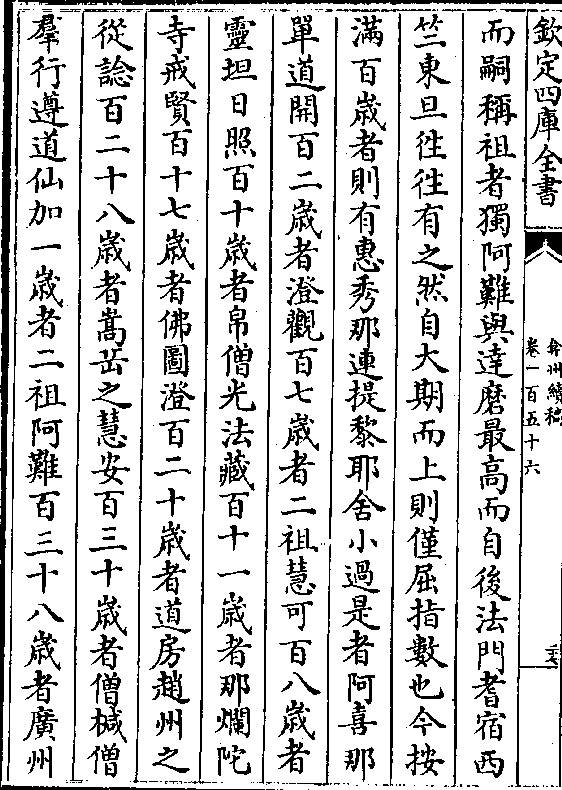 欽定四庫全書
弇州續稿
卷一百五十六
而嗣稱祖者獨阿難與達磨最高而自後法門耆宿西
竺東旦徃徃有之然自大期而上則僅屈指數也今按
滿百歳者則有惠秀那連提黎耶舍小過是者阿喜那
單道開百二歳者澄觀百七歳者二祖慧可百八歳者
靈坦日照百十歳者帛僧光法藏百十一歳者那爛陀
寺戒賢百十七歳者佛圖澄百二十歳者道房趙州之
從諗百二十八歳者嵩岳之慧安百三十歳者僧棫僧
羣行遵道仙加一歳者二祖阿難百三十八歳者廣州